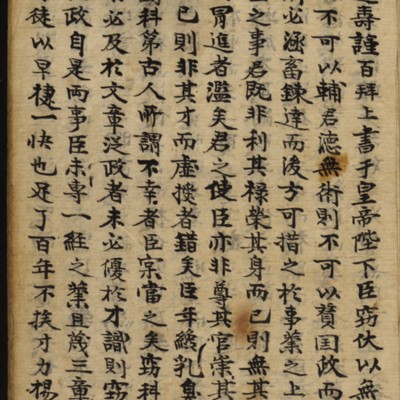 壽謹百拜上書于皇帝陛下臣竊伏以無
不可以輔君德無術則不可以賛囯政而
必涵畜鍊達而後方可措之於事業之上
之事君既非利其禄榮其身而已則無其
冐進者濫矣君之使臣亦非尊其官崇其
已則非其才而虛授者錯矣臣年纔乳臭
科第古人所謂不幸者臣宲當之矣竊科
未必及於文章泛政者未必優於才識則竊
政自是兩事臣未專一經之業且蔑三章
徒以早捷一快也足了百年不揆才力揚